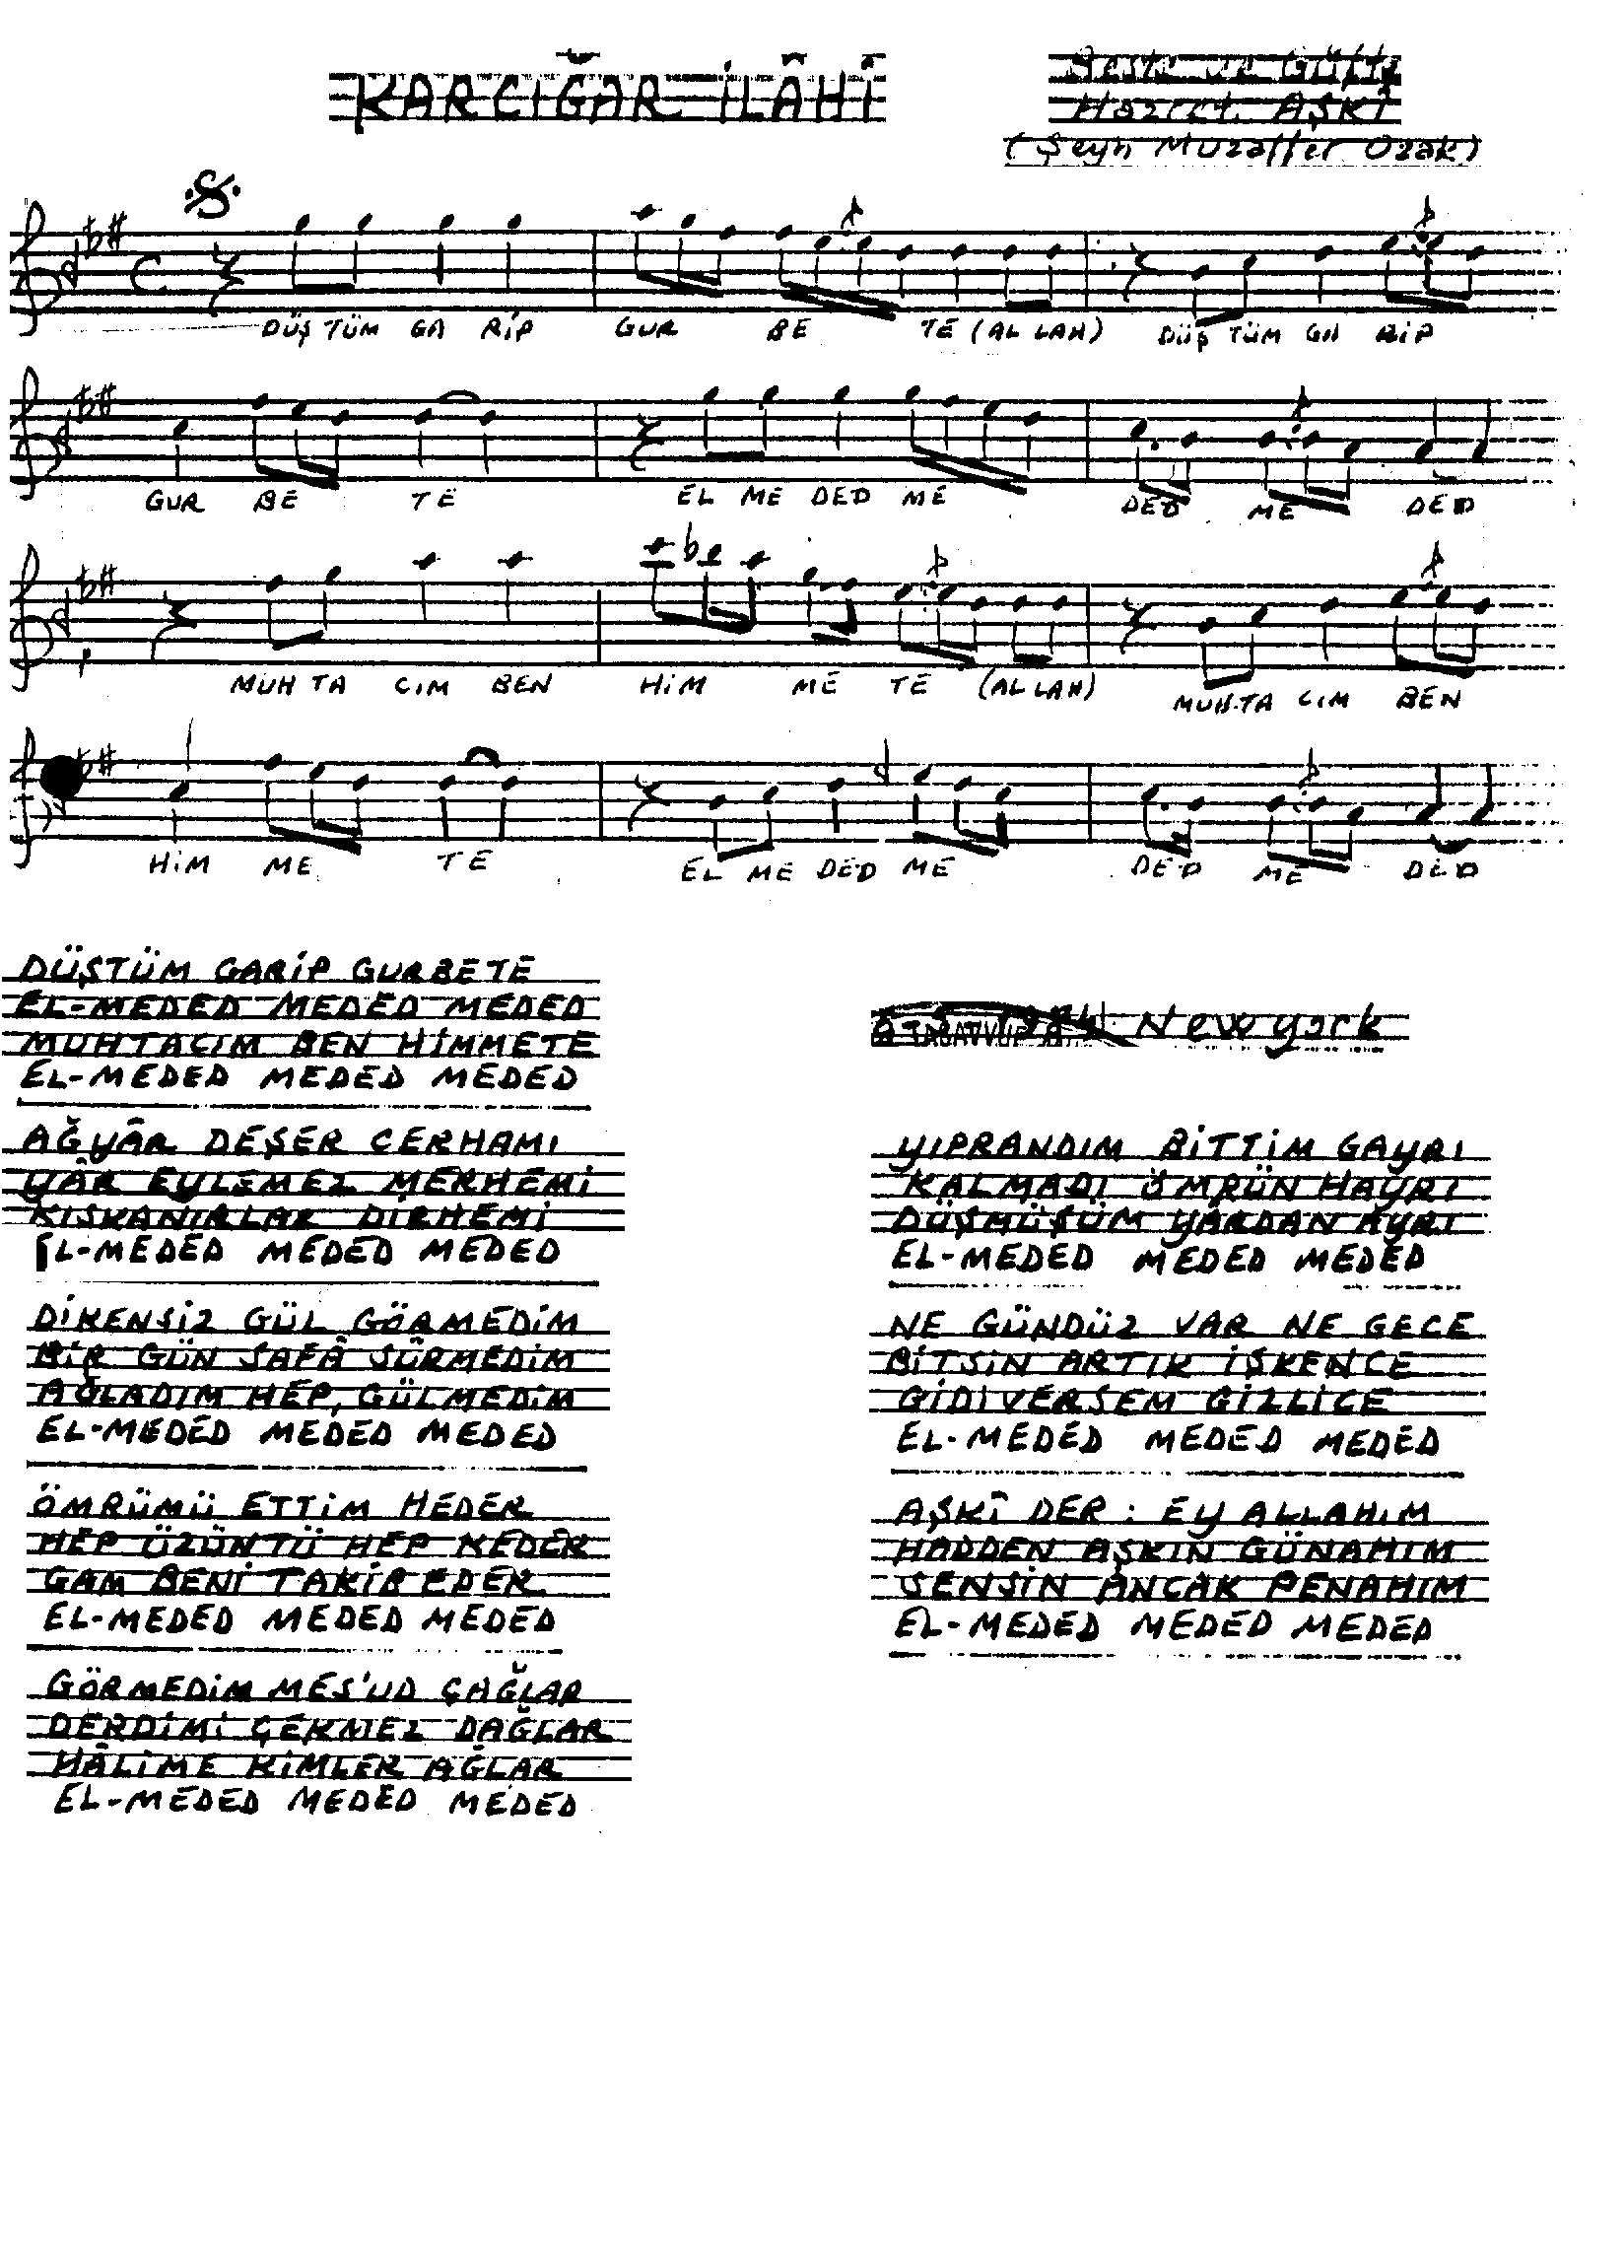 KARCIĞAR İLÂHÎ
Beste ve Güfte
Hazret. AŞKÎ
(Şeyh Muzaffer Ozak)
DÜŞ TÜM GA RİP GUR BE TE (AL LAH) DÜŞ TÜM GA RİP
GUR BE TE EL ME DED ME DED ME DED
MUH TA CIM BEN HİM ME TE (AL LAH) MUH.TA CIM BEN
HİM ME TE EL ME DED ME DED ME DED
DÜŞTÜM GARİP GURBETE
EL-MEDED MEDED MEDED
MUHTACIM BEN HİMMETE
EL-MEDED MEDED MEDED
AĞYÂR DEŞER CERHAMI
YÂR EYLEMEZ MERHEMİ
KISKANIRLAR DİRHEMİ
EL-MEDED MEDED MEDED
DİKENSİZ GÜL GÖRMEDİM
BİR GÜN SAFÂ SÜRMEDİM
AĞLADIM HEP, GÜLMEDİM
EL-MEDED MEDED MEDED
ÖMRÜMÜ ETTİM HEDER
HEP ÜZÜNTÜ HEP KEDER
GAM BENİ TAKİP EDER
EL-MEDED MEDED MEDED
GÖRMEDİM MES'UD ÇAĞLAR
DERDİMİ ÇEKMEZ DAĞLAR
HÂLİME KİMLER AĞLAR
EL-MEDED MEDED MEDED
1984 Newyork
YIPRANDIM BİTTİM GAYRI
KALMADI ÖMRÜN HAYRI
DÜŞMÜŞÜM YÂRDAN AYRI
EL-MEDED MEDED MEDED
NE GÜNDÜZ VAR NE GECE
BİTSİN ARTIK İŞKENCE
GİDİVERSEM GİZLİCE
EL-MEDED MEDED MEDED
AŞKÎ DER : EY ALLAHIM
HADDEN AŞKIN GÜNAHIM
SENSİN ANCAK PENAHIM
EL-MEDED MEDED MEDED